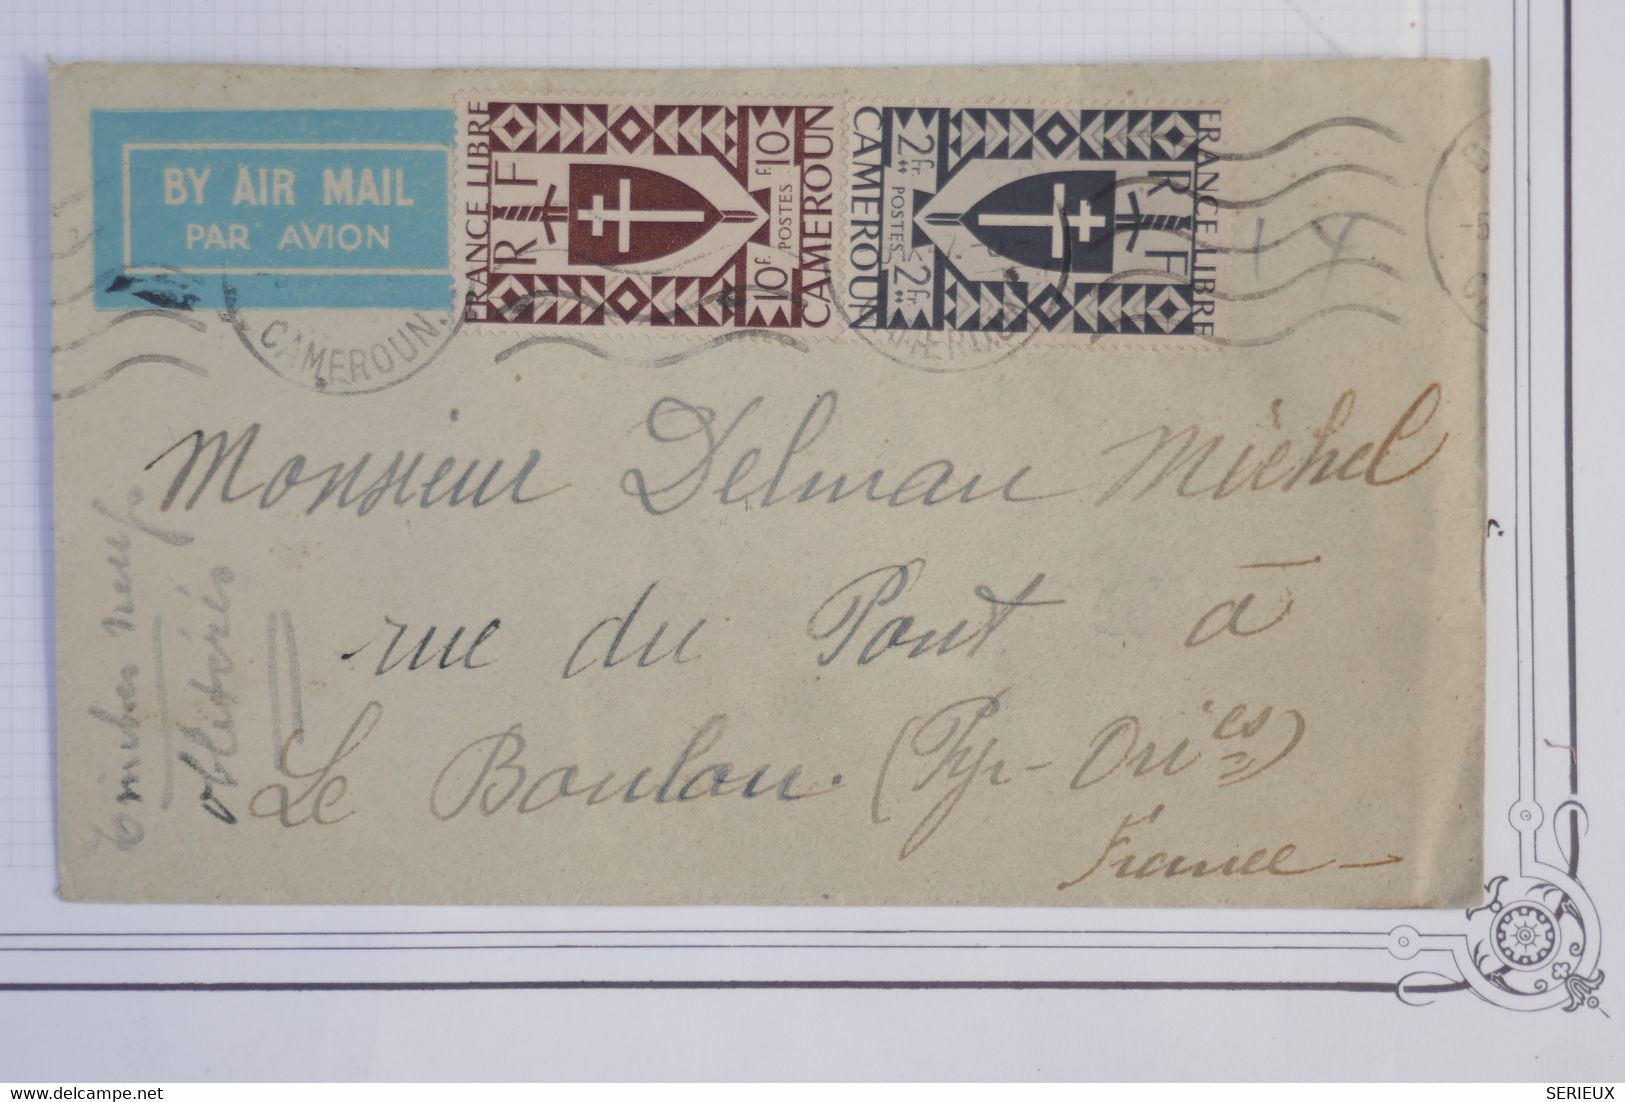 BY AIR MAIL
PAR AVION
FRANCE LIBRE
RF
10F. POSTES F.10
CAMEROUN
FRANCE LIBRE
RF
2fr. POSTES 2fr.
CAMEROUN
CAMEROUN.
14
Monsieur Delmau Michel
rue du Pont à
Le Boulou. (Pyr-Ories)
France
timbres neufs
oblitérés
SERIEUX